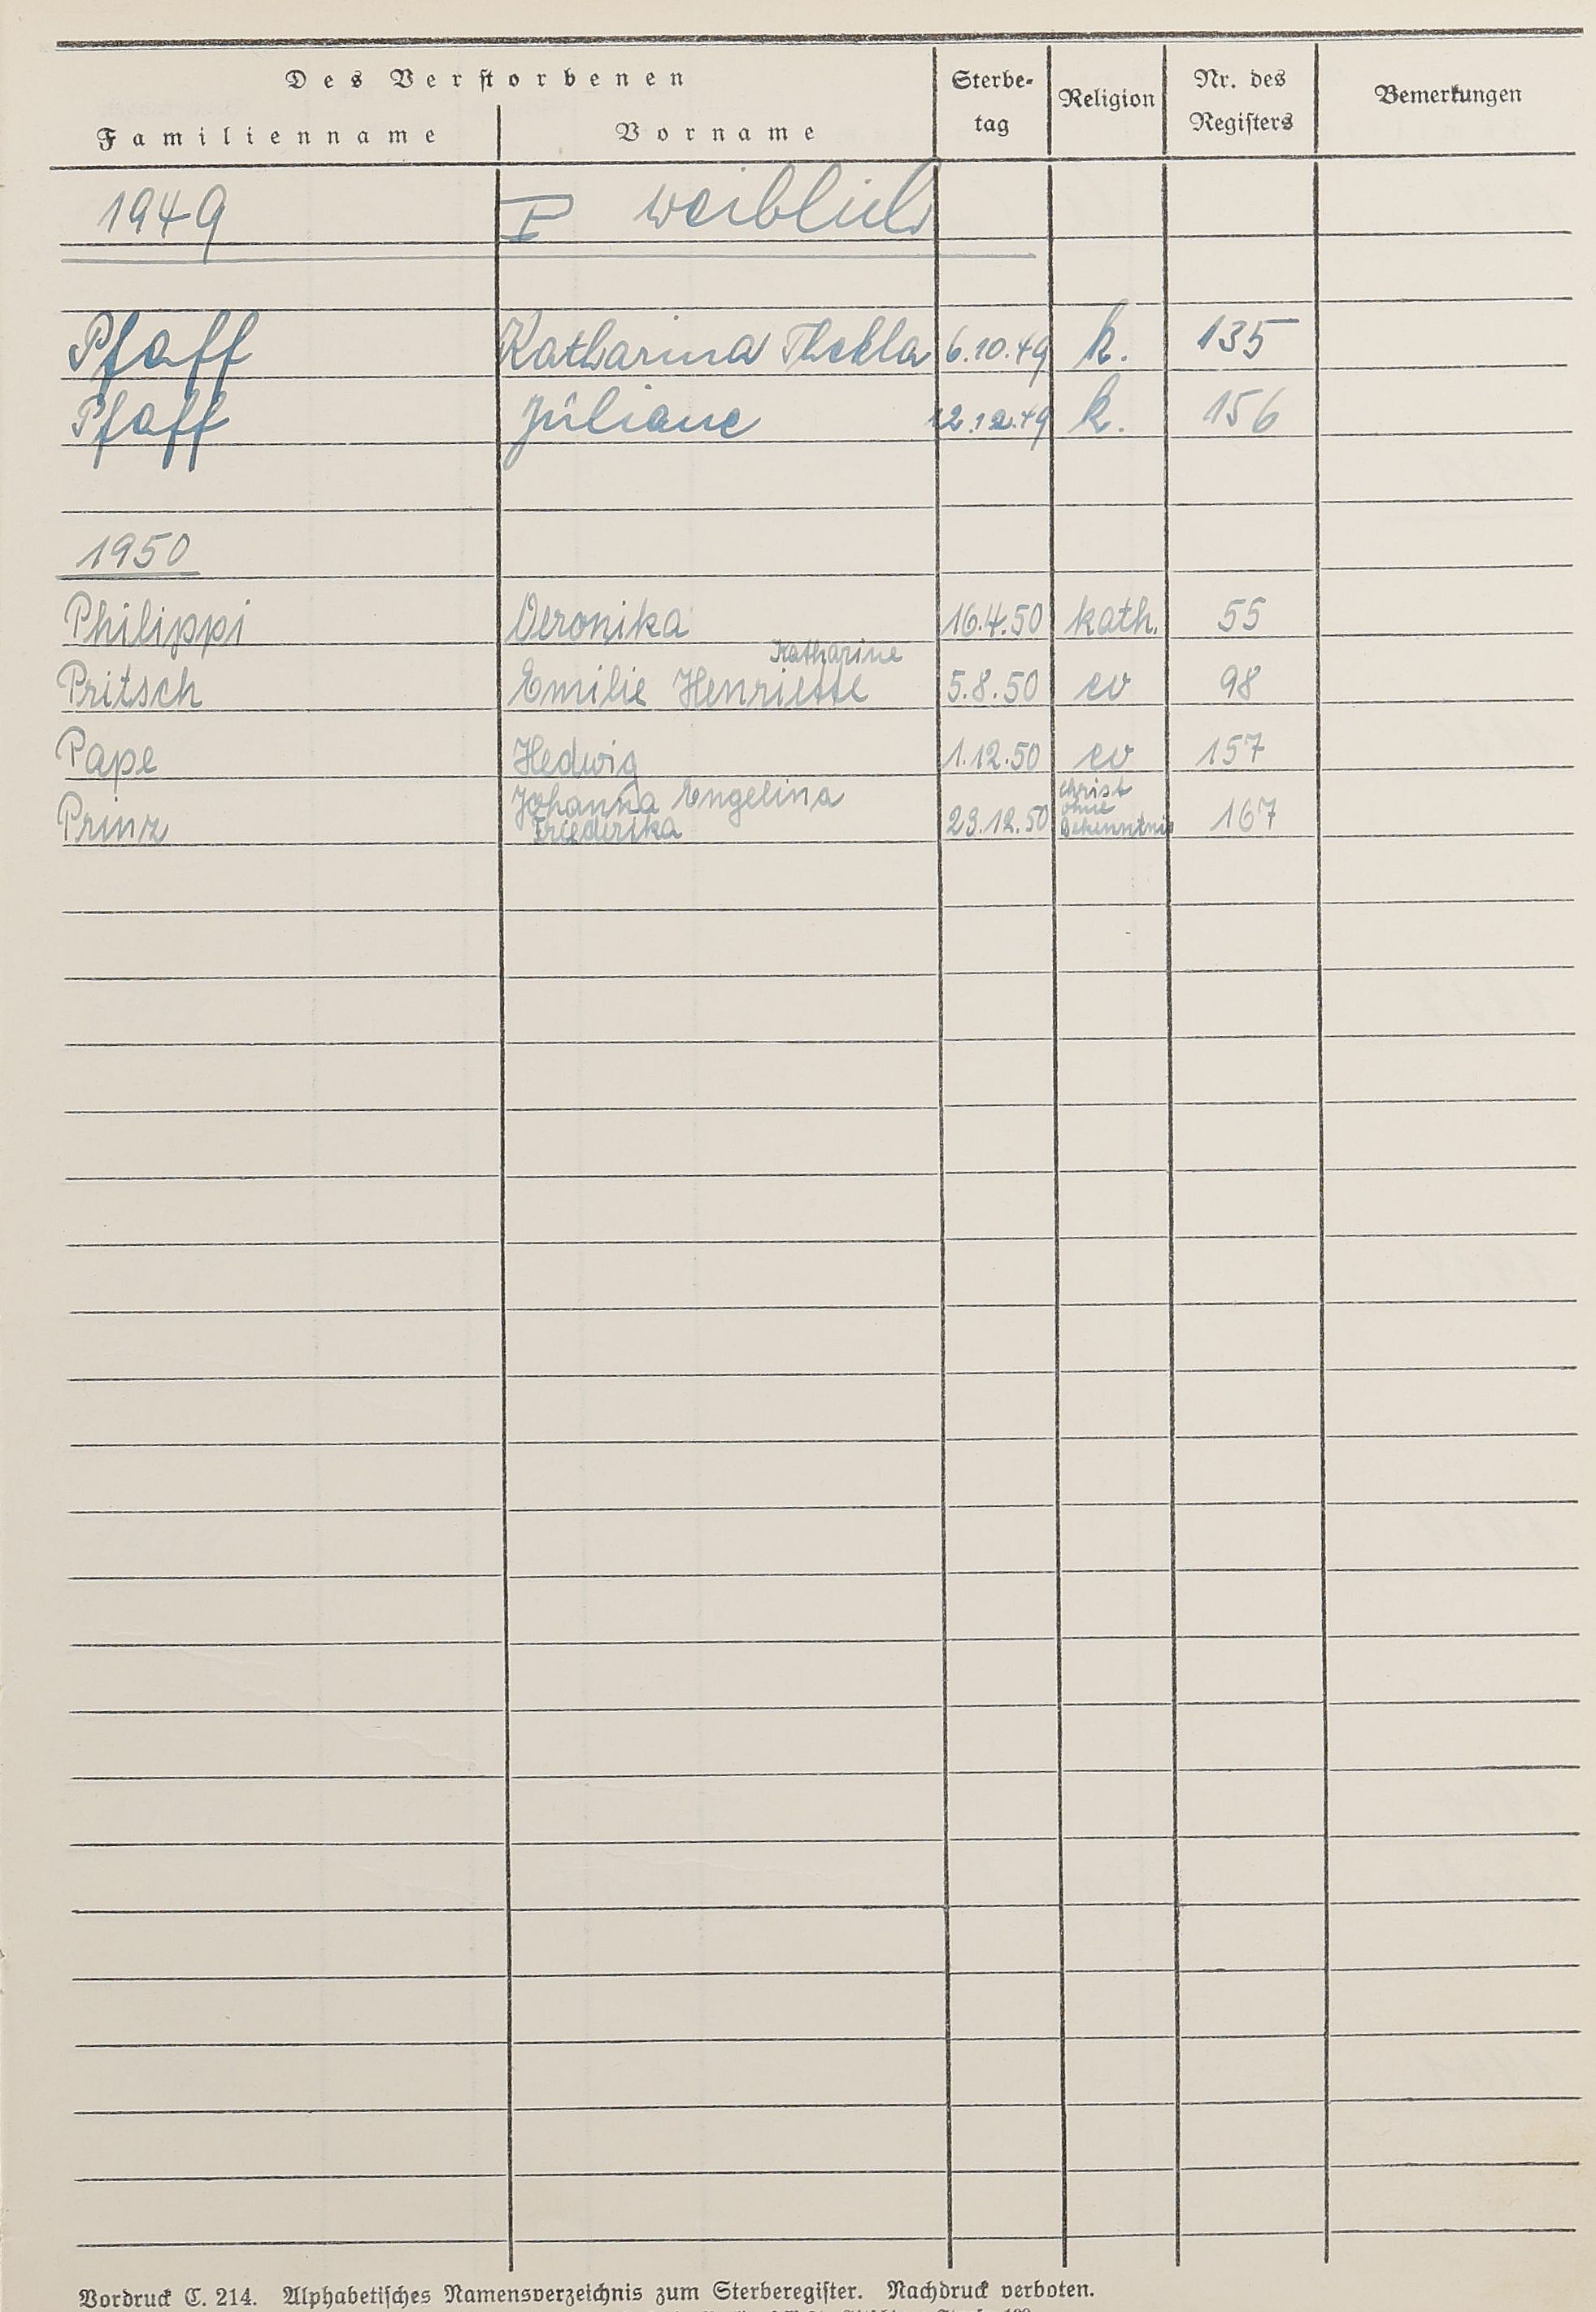 Des Verstorbenen
Familienname Vorname Sterbe-tag Religion Nr. des Registers Bemerkungen
1949 P weiblich
Pfaff Katharina Thekla 6.10.49 k. 135
Pfaff Juliane 12.12.49 k. 156
1950
Philippi Veronika 16.4.50 kath. 55
Katharine
Pritsch Emilie Henriette 5.8.50 ev 98
Pape Hedwig 1.12.50 ev 157
Prinz Johanna Engelina Friederika 23.12.50 christ ohne Bekenntnis 167
Vordruck C. 214. Alphabetisches Namensverzeichnis zum Sterberegister. Nachdruck verboten.